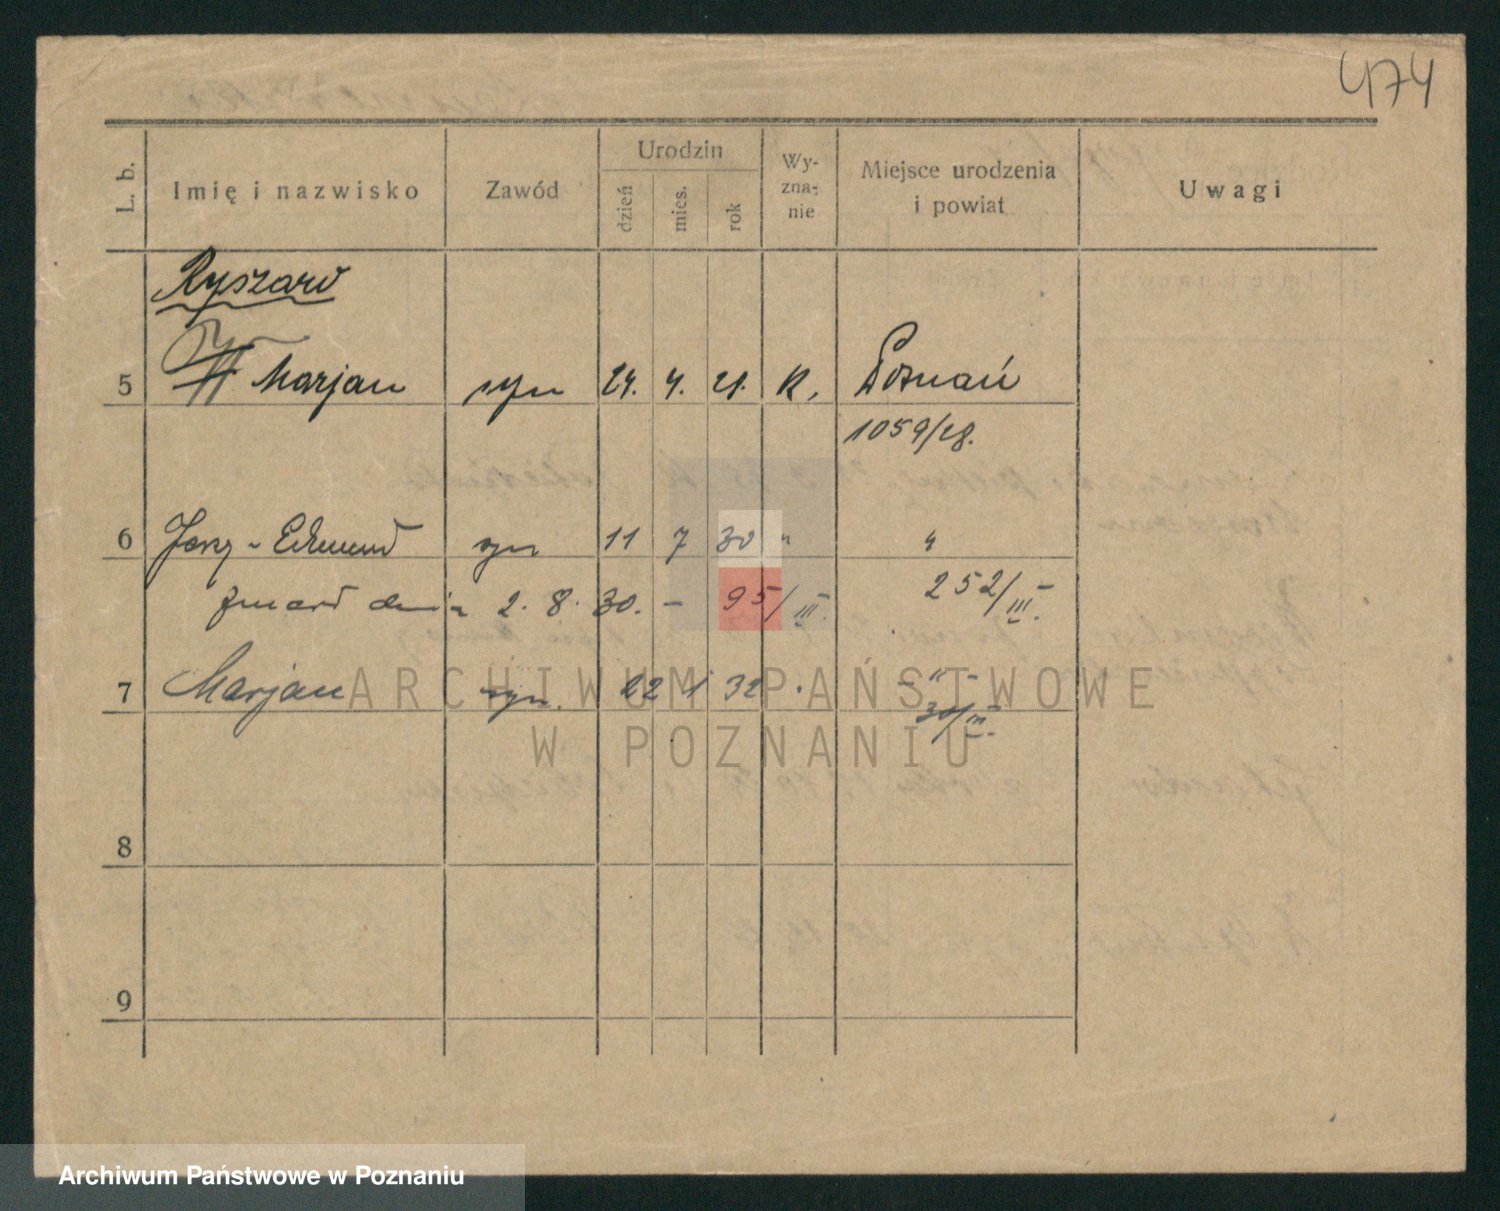 474
L. b. Imię i nazwisko Zawód Urodzin dzień mies. rok Wy-zna-nie Miejsce urodzenia i powiat Uwagi
Ryszard
5 Marjan syn 24. 4. 28. k. Poznań
1059/28.
6 Jerzy - Edmund syn 11 7 30 " "
zmarł dnia 2. 8. 30. - 95/III 252/III.
7 Marjan syn. 22 1 32 - " -
30/III.
8
9
ARCHIWUM PAŃSTWOWE
W POZNANIU
Archiwum Państwowe w Poznaniu